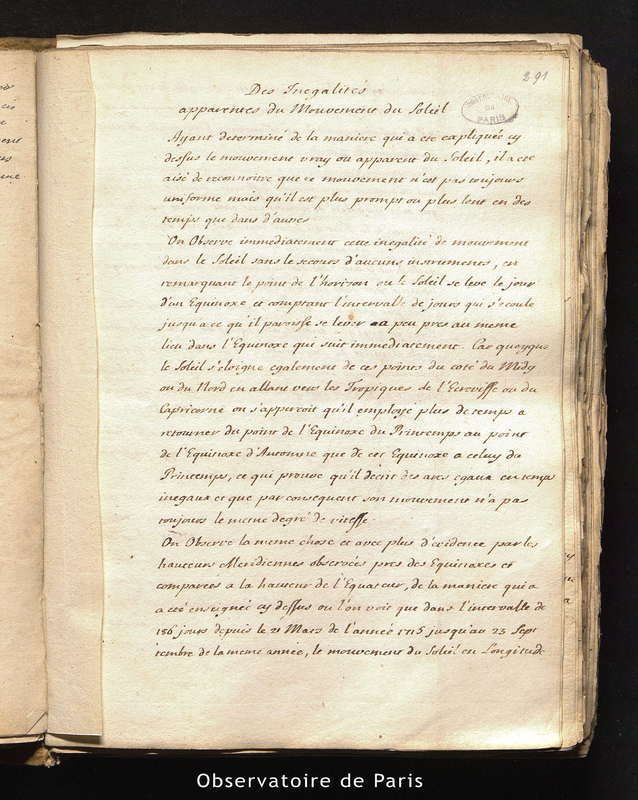 291
OBSERVATOIRE
DE
PARIS
Des Inegalités
apparentes du Mouvement du Soleil
Ayant determiné de la maniere qui a eté expliquée cy
dessus le mouvement vray ou apparent du Soleil, il a eté
aisé de reconnoitre que ce mouvement n'est pas toujours
uniforme mais qu'il est plus prompt ou plus lent en des
temps que dans d'autres
On Observe immediatement cette inegalité de mouvement
dans le Soleil sans le secours d'aucuns instruments, en
remarquant le point de l'horizon ou le Soleil se leve le jour
d'un Equinoxe et comptant l'intervalle de jours qui s'ecoule
jusqu'a ce qu'il paroisse se lever a peu pres au meme
lieu dans l'Equinoxe qui suit immediatement. Car quoyque
le Soleil s'eloigne egalement de ces points du coté du Midy
ou du Nord en allant vers les Tropiques de l'Ecrevisse ou du
Capricorne on s'apperçoit qu'il employe plus de temps a
retourner du point de l'Equinoxe du Printemps au point
de l'Equinoxe d'Automne que de cet Equinoxe a celuy du
Printemps, ce qui prouve qu'il decrit des arcs egaux en temps
inegaux et que par consequent son mouvement n'a pas
toujours le meme degré de vitesse.
On Observe la meme chose et avec plus d'evidence par les
hauteurs Meridiennes observées pres des Equinoxes et
comparées a la hauteur de l'Equateur, de la maniere qui a
a eté enseignée cy dessus ou l'on voit que dans l'intervalle de
186 jours depuis le 21 Mars de l'année 1715 jusqu'au 23 Sept
tembre de la meme année, le mouvement du Soleil en Longitude
Observatoire de Paris